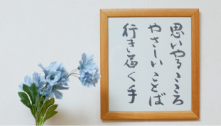 思いやるこころ
やさしいことば
行き届く手